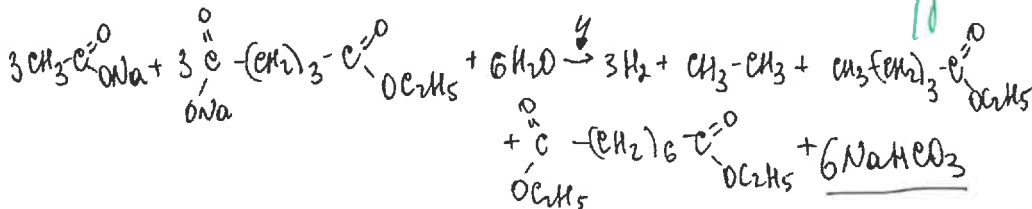 3CH₃-C(=O)ONa + 3 C(=O)(ONa)-(CH₂)₃-C(=O)OC₂H₅ + 6H₂O → 3H₂ + CH₃-CH₃ + CH₃-(CH₂)₃-C(=O)OC₂H₅
+ C(=O)(OC₂H₅)-(CH₂)₆-C(=O)OC₂H₅ + 6NaHCO₃